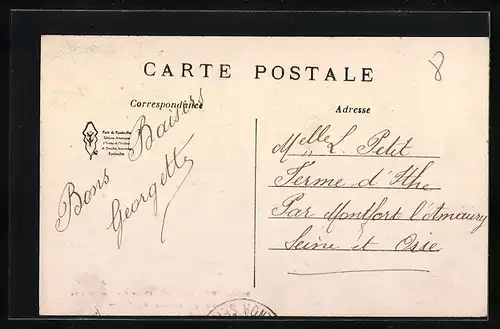 8
CARTE POSTALE
Correspondance
Adresse
Bons Baisers
Georgette
Melle L. Petit
Ferme d'Ithe
Par Montfort l'Amaury
Seine et Oise